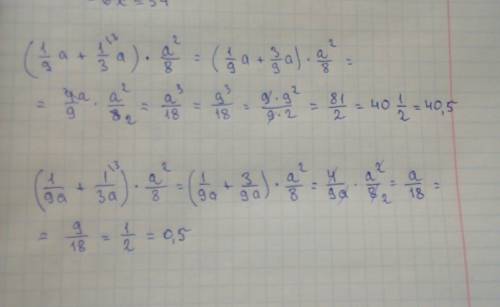 6x = 54
(1/9 a + 1/3 a)^{\3} · a²/8 = (1/9 a + 3/9 a) · a²/8 =
= 4a/9 · a²/8 ₂ = a³/18 = 9³/18 = 9·9²/9·2 = 81/2 = 40 1/2 = 40,5
(1/9a + 1^{\3}/3a) · a²/8 = (1/9a + 3/9a) · a²/8 = 4/9a · a²/8 ₂ = a/18 =
= 9/18 = 1/2 = 0,5